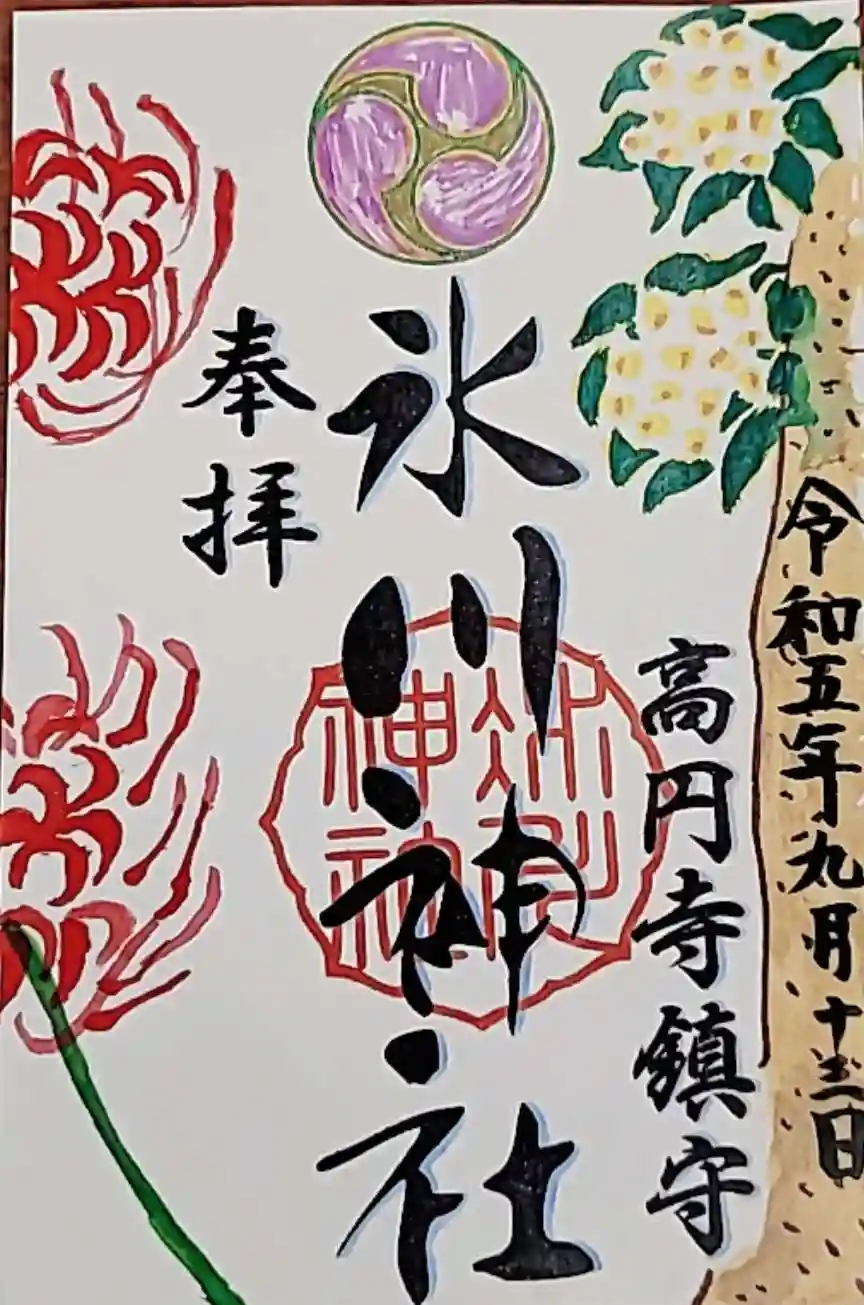 令和五年九月十三日
高円寺鎮守
氷川神社
奉拝